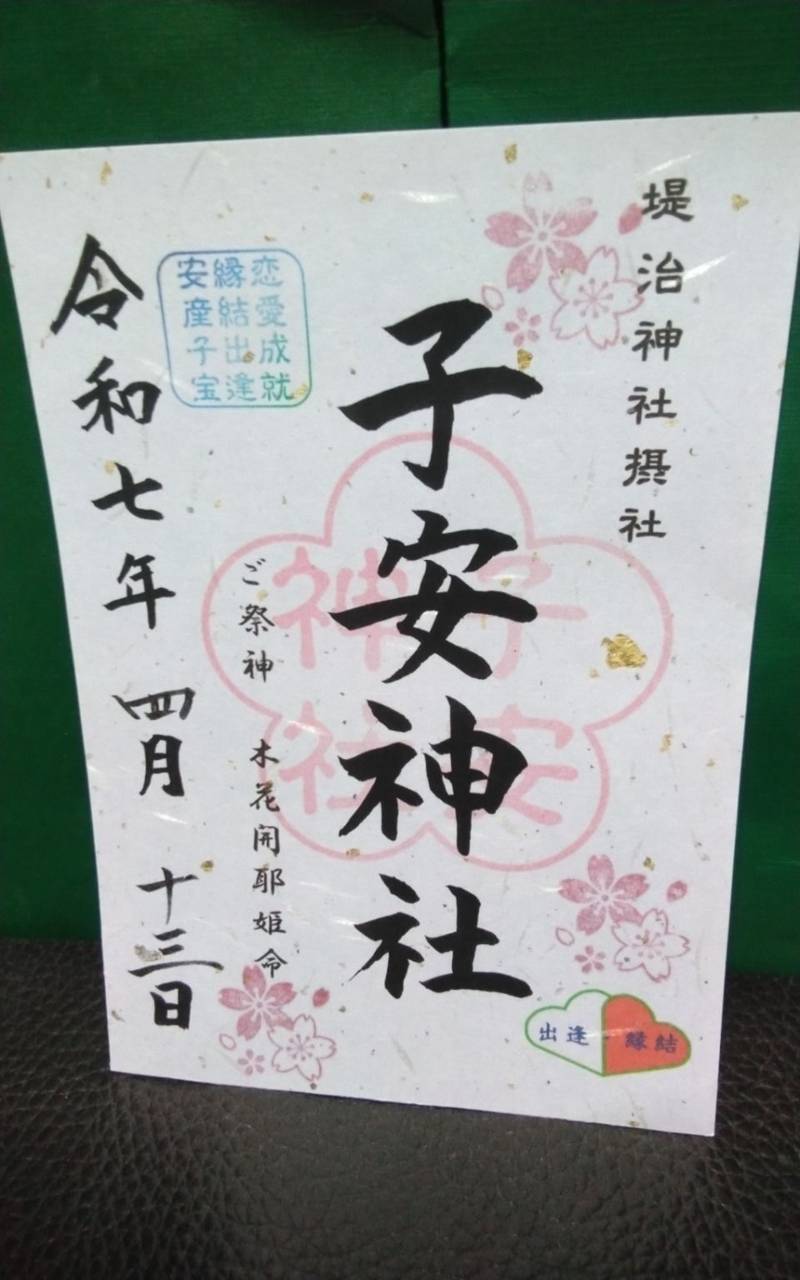 堤治神社摂社
子安神社
子安
神社
ご祭神 木花開耶姫命
恋愛成就
縁結出逢
安産子宝
令和七年四月十三日
出逢
縁結